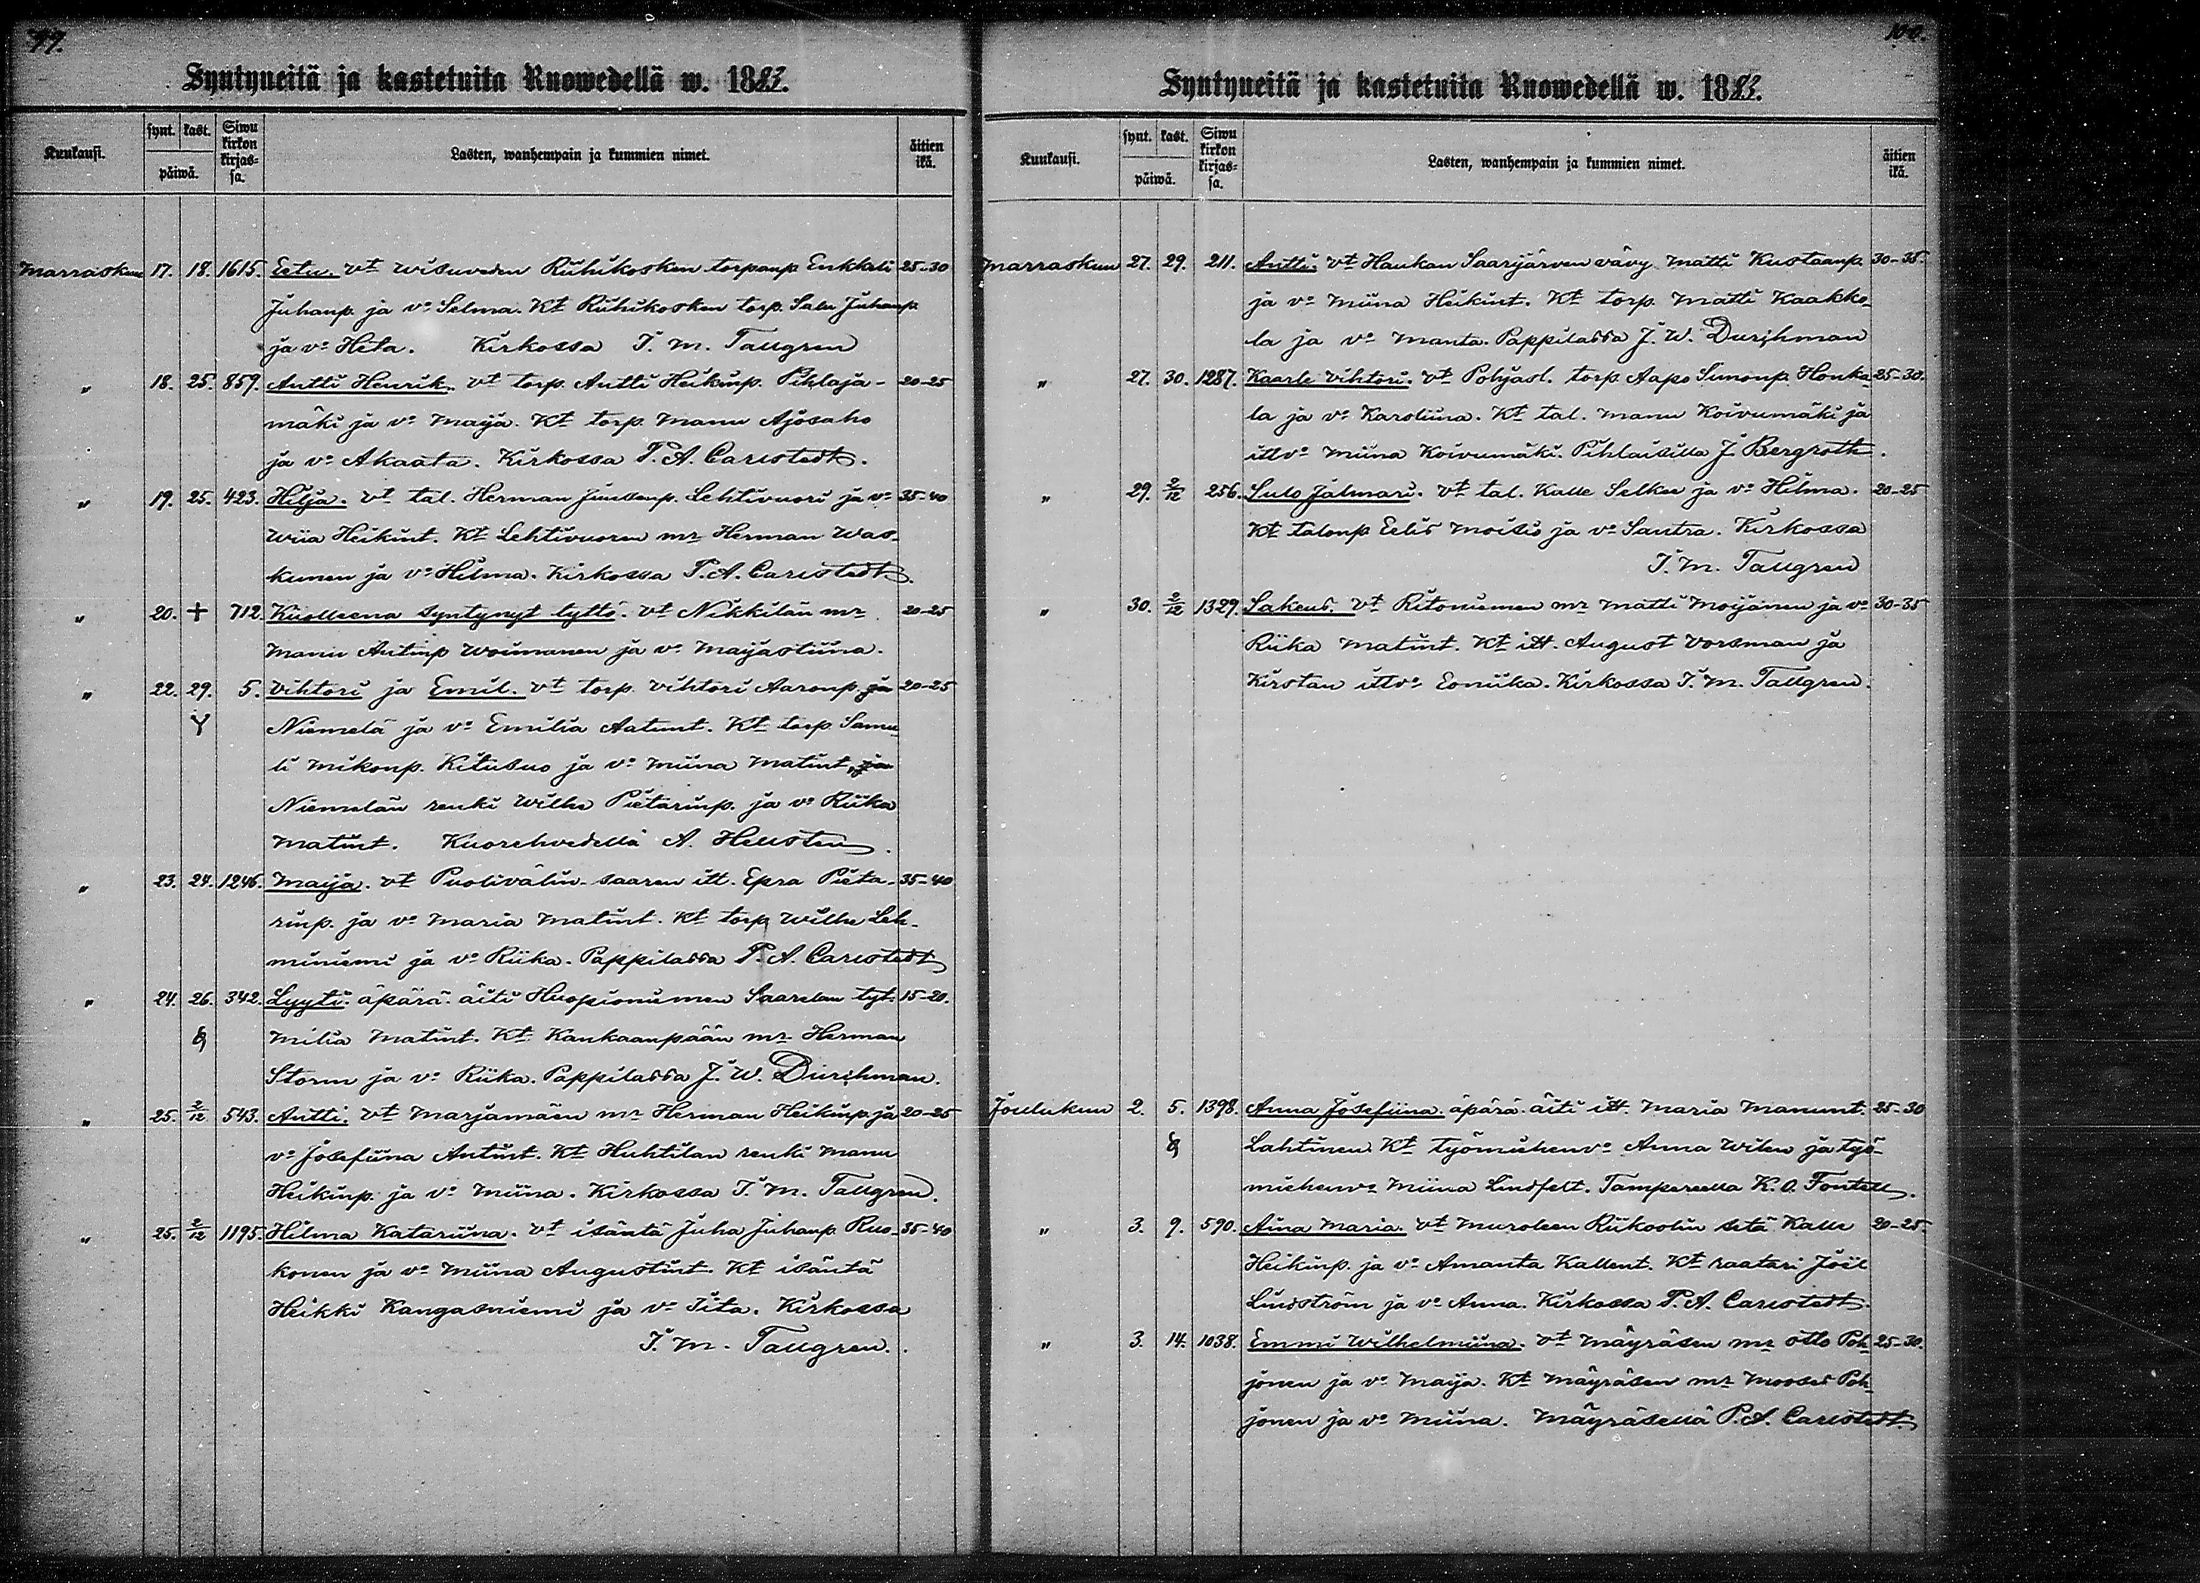 99.
Syntyneitä ja kastetuita Ruowedellä w. 1883.
Kuukausi. synt. kast. päiwä. Siwu kirkon kirjas-sa. Lasten, wanhempain ja kummien nimet. äitien ikä.
Marraskuu 17. 18. 1615. Eetu. vt Wisuveden Ruhikosken torpanp. Enkkeli 25-30
Juhanp. ja vo Selma. Kt Ruhikosken torp. Salu Juhanp.
ja vo Heta. Kirkossa T. M. Tallgren
" 18. 25. 859. Antti Henrik. vt torp. Antti Heikinp. Pihlaja- 20-25
mäki ja vo Maija. Kt torp. Manu Ajosaho
ja vo Akaata. Kirkossa P. A. Carlstedt.
" 19. 25. 423. Hilja. vt tal. Herman Juusenp. Lehtivuori ja vo 35-40
Wiia Heikint. Kt Lehtivuoren mr Herman Was-
kunen ja vo Hilma. Kirkossa P. A. Carlstedt.
" 20. + 712. Kuolleena syntynyt tyttö. vt Nikkilän mr 20-25
Manu Antinp Woimanen ja vo Maijastiina.
" 22. 29. 5. Vihtori ja Emil. vt torp. Vihtori Aaronp. ja 20-25
Y Niemelä ja vo Emilia Aatunt. Kt torp. Samu
li Mikonp. Kitusuo ja vo Miina Matint, ja
Niemelän renki Wilhe Pietarinp. ja vo Riika
Matint. Kuorehvedellä A. Hellsten.
" 23. 24. 1246. Maija. vt Puolivälin-saaren itt. Epra Pieta- 35-40
rinp. ja vo Maria Matint. Kt torp Wilhe Leh-
miniemi ja vo Riika. Pappilassa P. A. Carlstedt
" 24. 26. 342. Lyyti. äpärä. äiti Huopioniemen Saarelan tyt. 15-20.
Milia Matint. Kt Kankaanpään mr Herman
Storm ja vo Riika. Pappilassa J. W. Durchman.
" 25. 2/12 543. Antti. vt Marjamäen mr Herman Heikinp. ja 20-25
vo Josefiina Antint. Kt Huhtilan renki Manu
Heikinp. ja vo Miina. Kirkossa T. M. Tallgren.
" 25. 2/12 1195. Hilma Katariina. vt isäntä Juha Juhanp. Ruo- 35-40
konen ja vo Miina Augustint. Kt isäntä
Heikki Kangasniemi ja vo Iita. Kirkossa
T. M. Tallgren.
100.
Syntyneitä ja kastetuita Ruowedellä w. 1883.
Kuukausi. synt. kast. päiwä. Siwu kirkon kirjas-sa. Lasten, wanhempain ja kummien nimet. äitien ikä.
Marraskuu 27. 29. 211. Antti. vt Haukan Saarijärven vävy Matti Kustaanp. 30-35.
ja vo Miina Heikint. Kt torp. Matti Kaakko-
la ja vo Manta. Pappilassa J. W. Durchman
" 27. 30. 1287. Kaarle Vihtori. vt Pohjasl. torp. Aapo Simonp. Honka- 25-30.
la ja vo Karoliina. Kt tal. Manu Koivumäki ja
itlvo Miina Koivumäki. Pihlaisilla J. Bergroth.
" 29. 2/12 256. Sulo Jalmari. vt tal. Kalle Selkee ja vo Hilma. 20-25
Kt talonp. Eelis Moisio ja vo Santra. Kirkossa
T. M. Tallgren
" 30. 2/12 1329. Sakeus. vt Ritoniemen mr Matti Moijanen ja vo 30-35
Riika Matint. Kt itt. August Vorsman ja
Kirstan itlvo Eoniika. Kirkossa T. M. Tallgren.
Joulukuu 2. 5. 1398. Anna Josefiina. äpärä. äiti itt. Maria Manunt. 25-30
Lahtinen. Kt työmiehenvo Anna Wilen ja työ-
miehenvo Miina Lindfelt. Tampereella K. O. Fontell.
" 3. 9. 590. Aina Maria. vt Muroleen Riikoolin setä Kalle 20-25.
Heikinp. ja vo Amanta Kallent. Kt raatari Joel
Lindström ja vo Anna. Kirkossa P. A. Carlstedt.
" 3. 14. 1038. Emmi Wilhelmiina. vt Mäyräsen mr Otto Poh- 25-30.
jonen ja vo Maija. Kt Mäyräsen mr Mooses Poh-
jonen ja vo Miina. Mäyräsellä P. A. Carlstedt.